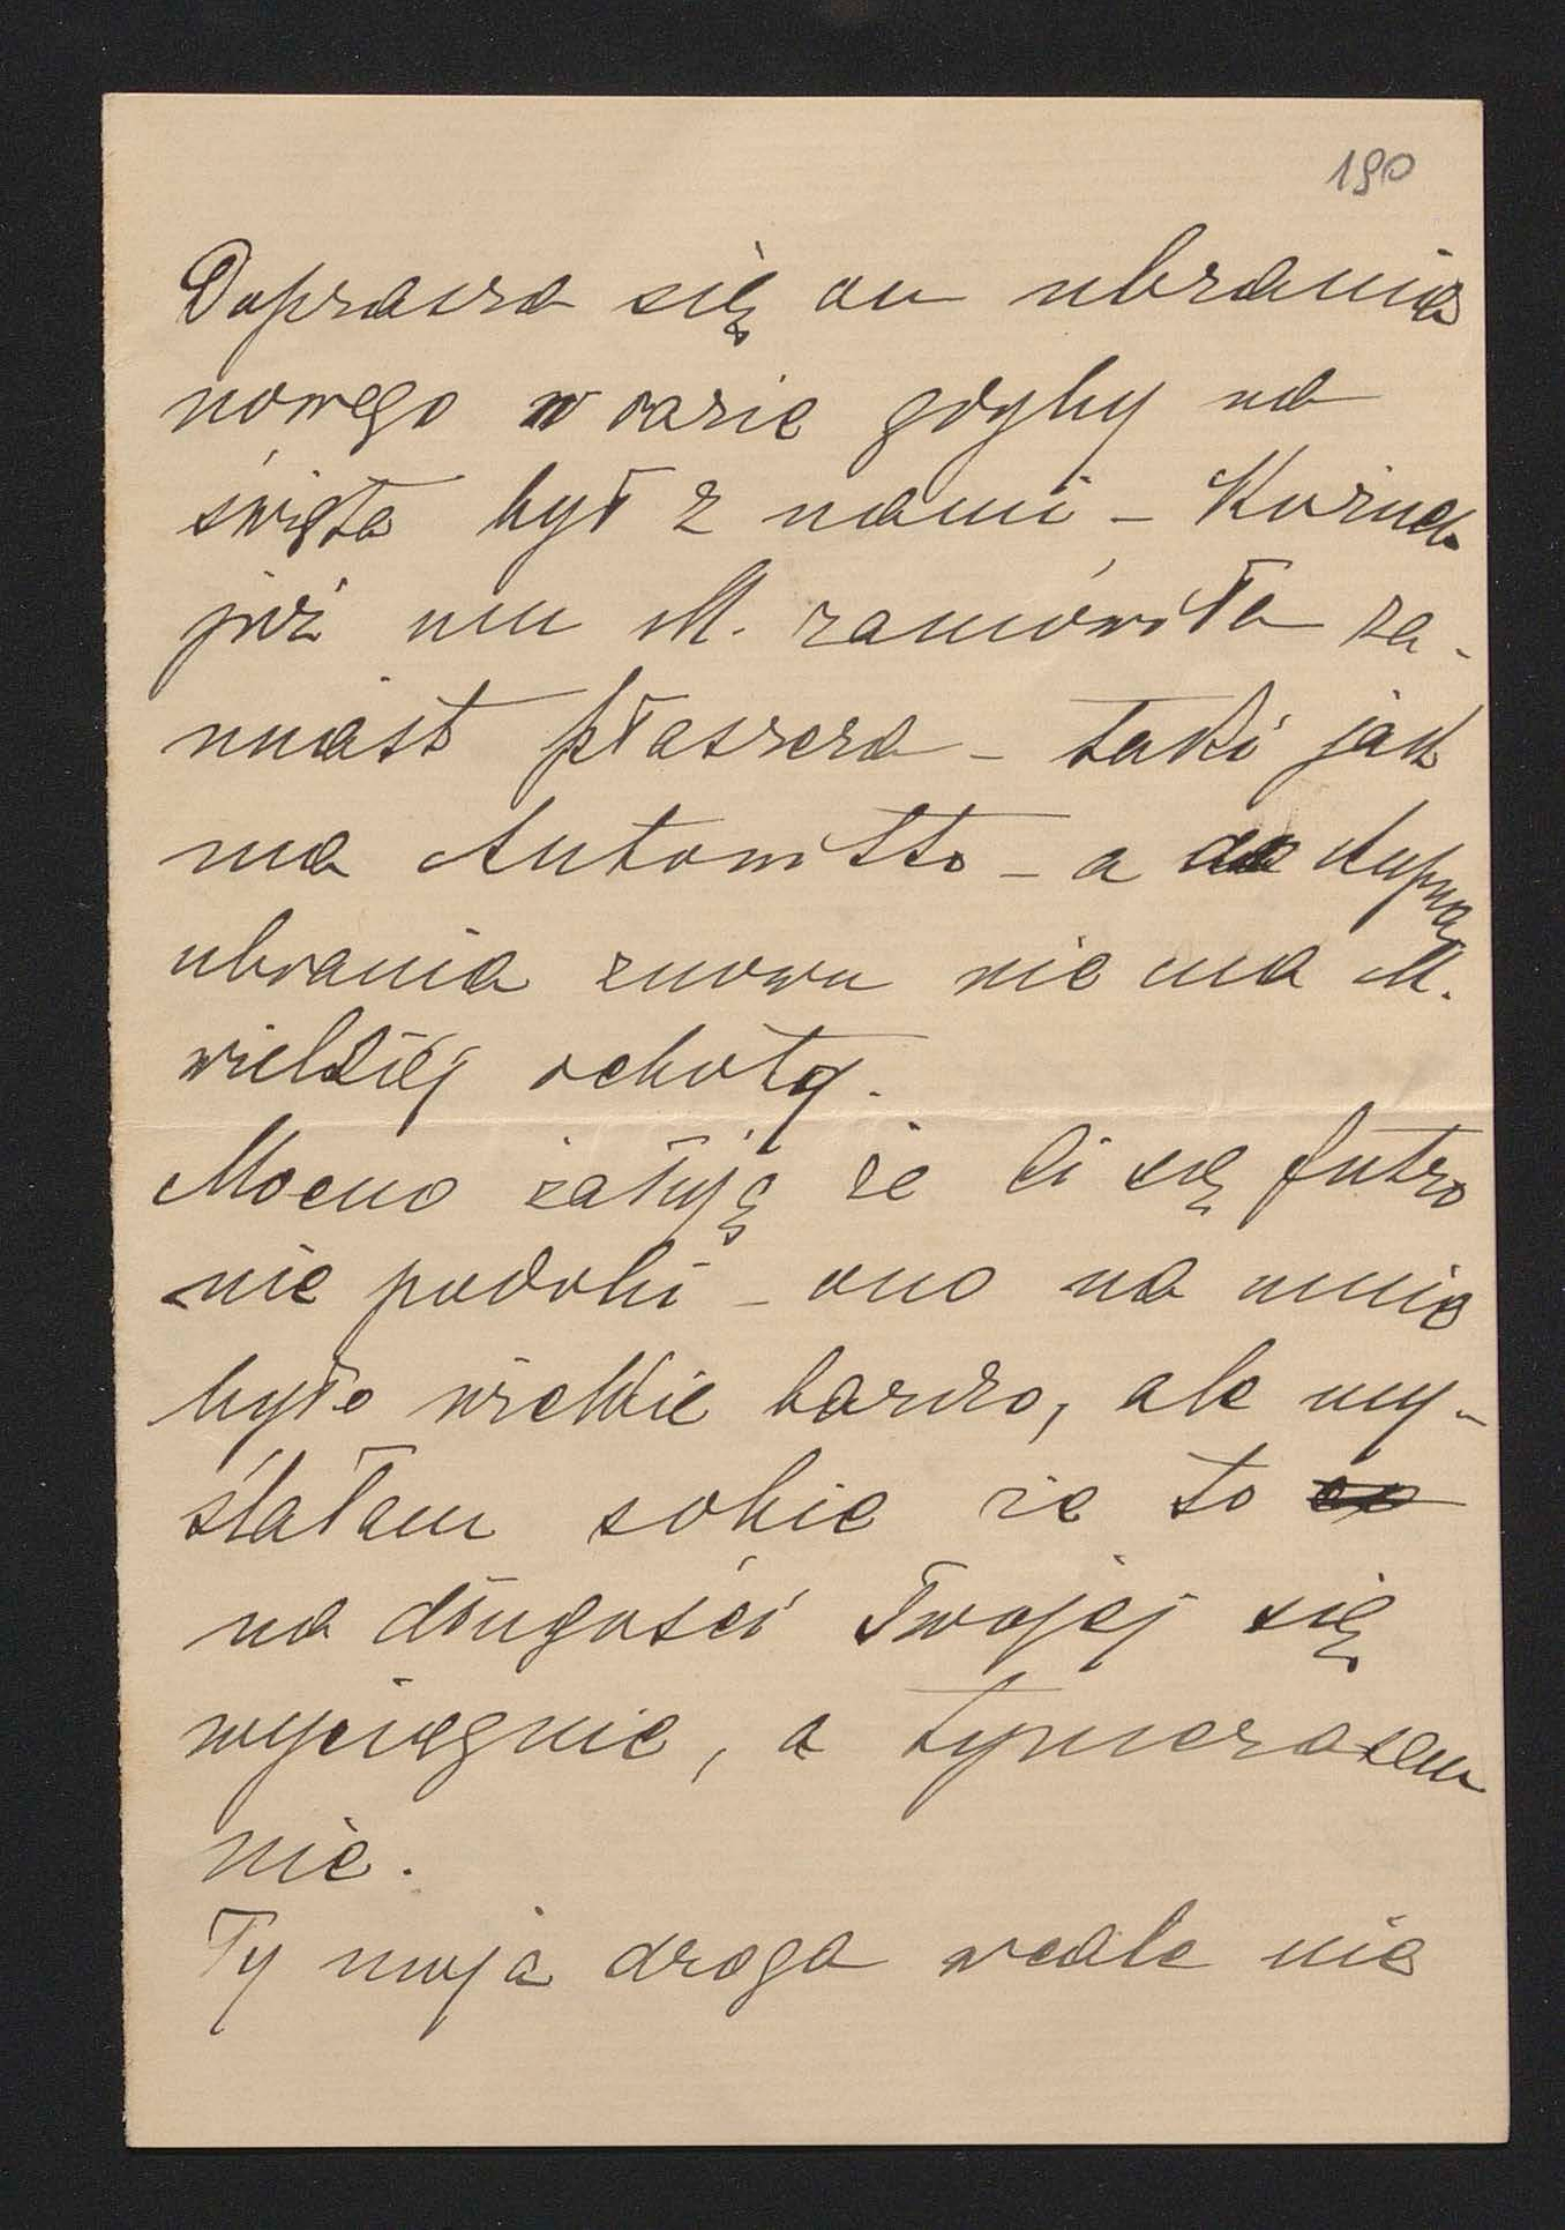 190
Doprasza się on ubrania
nowego w razie gdyby na
święta był z nami – Kożuch
już mu M. zamówiła za-
miast płaszcza – taki jak
ma Antoni – a do kupna
ubrania znowu nie ma M.
wielkiéj ochoty.
Mocno żałuję że Ci się futro
nie podobi – ono na mnie
było wielkie bardzo, ale my-
ślałam sobie że to
na długości Twojej się
wyciągnie, a tymczasem
nie.
Ty moja droga wcale nie